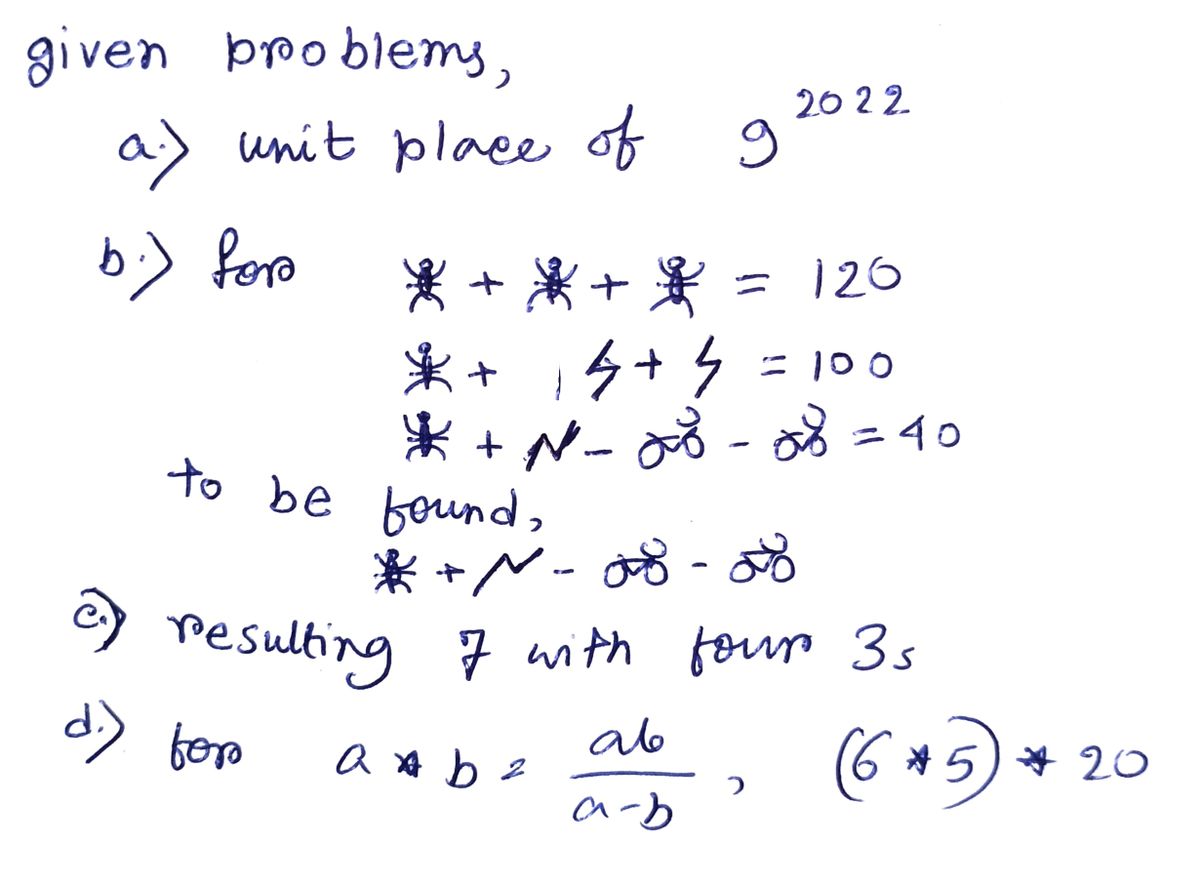 given problems,
a.) unit place of 9^2022
b.) for + + = 120
+ + = 100
+ - - = 40
to be found,
+ - -
c.) resulting 7 with four 3s
d.) for a * b = ab/(a-b), (6 * 5) * 20